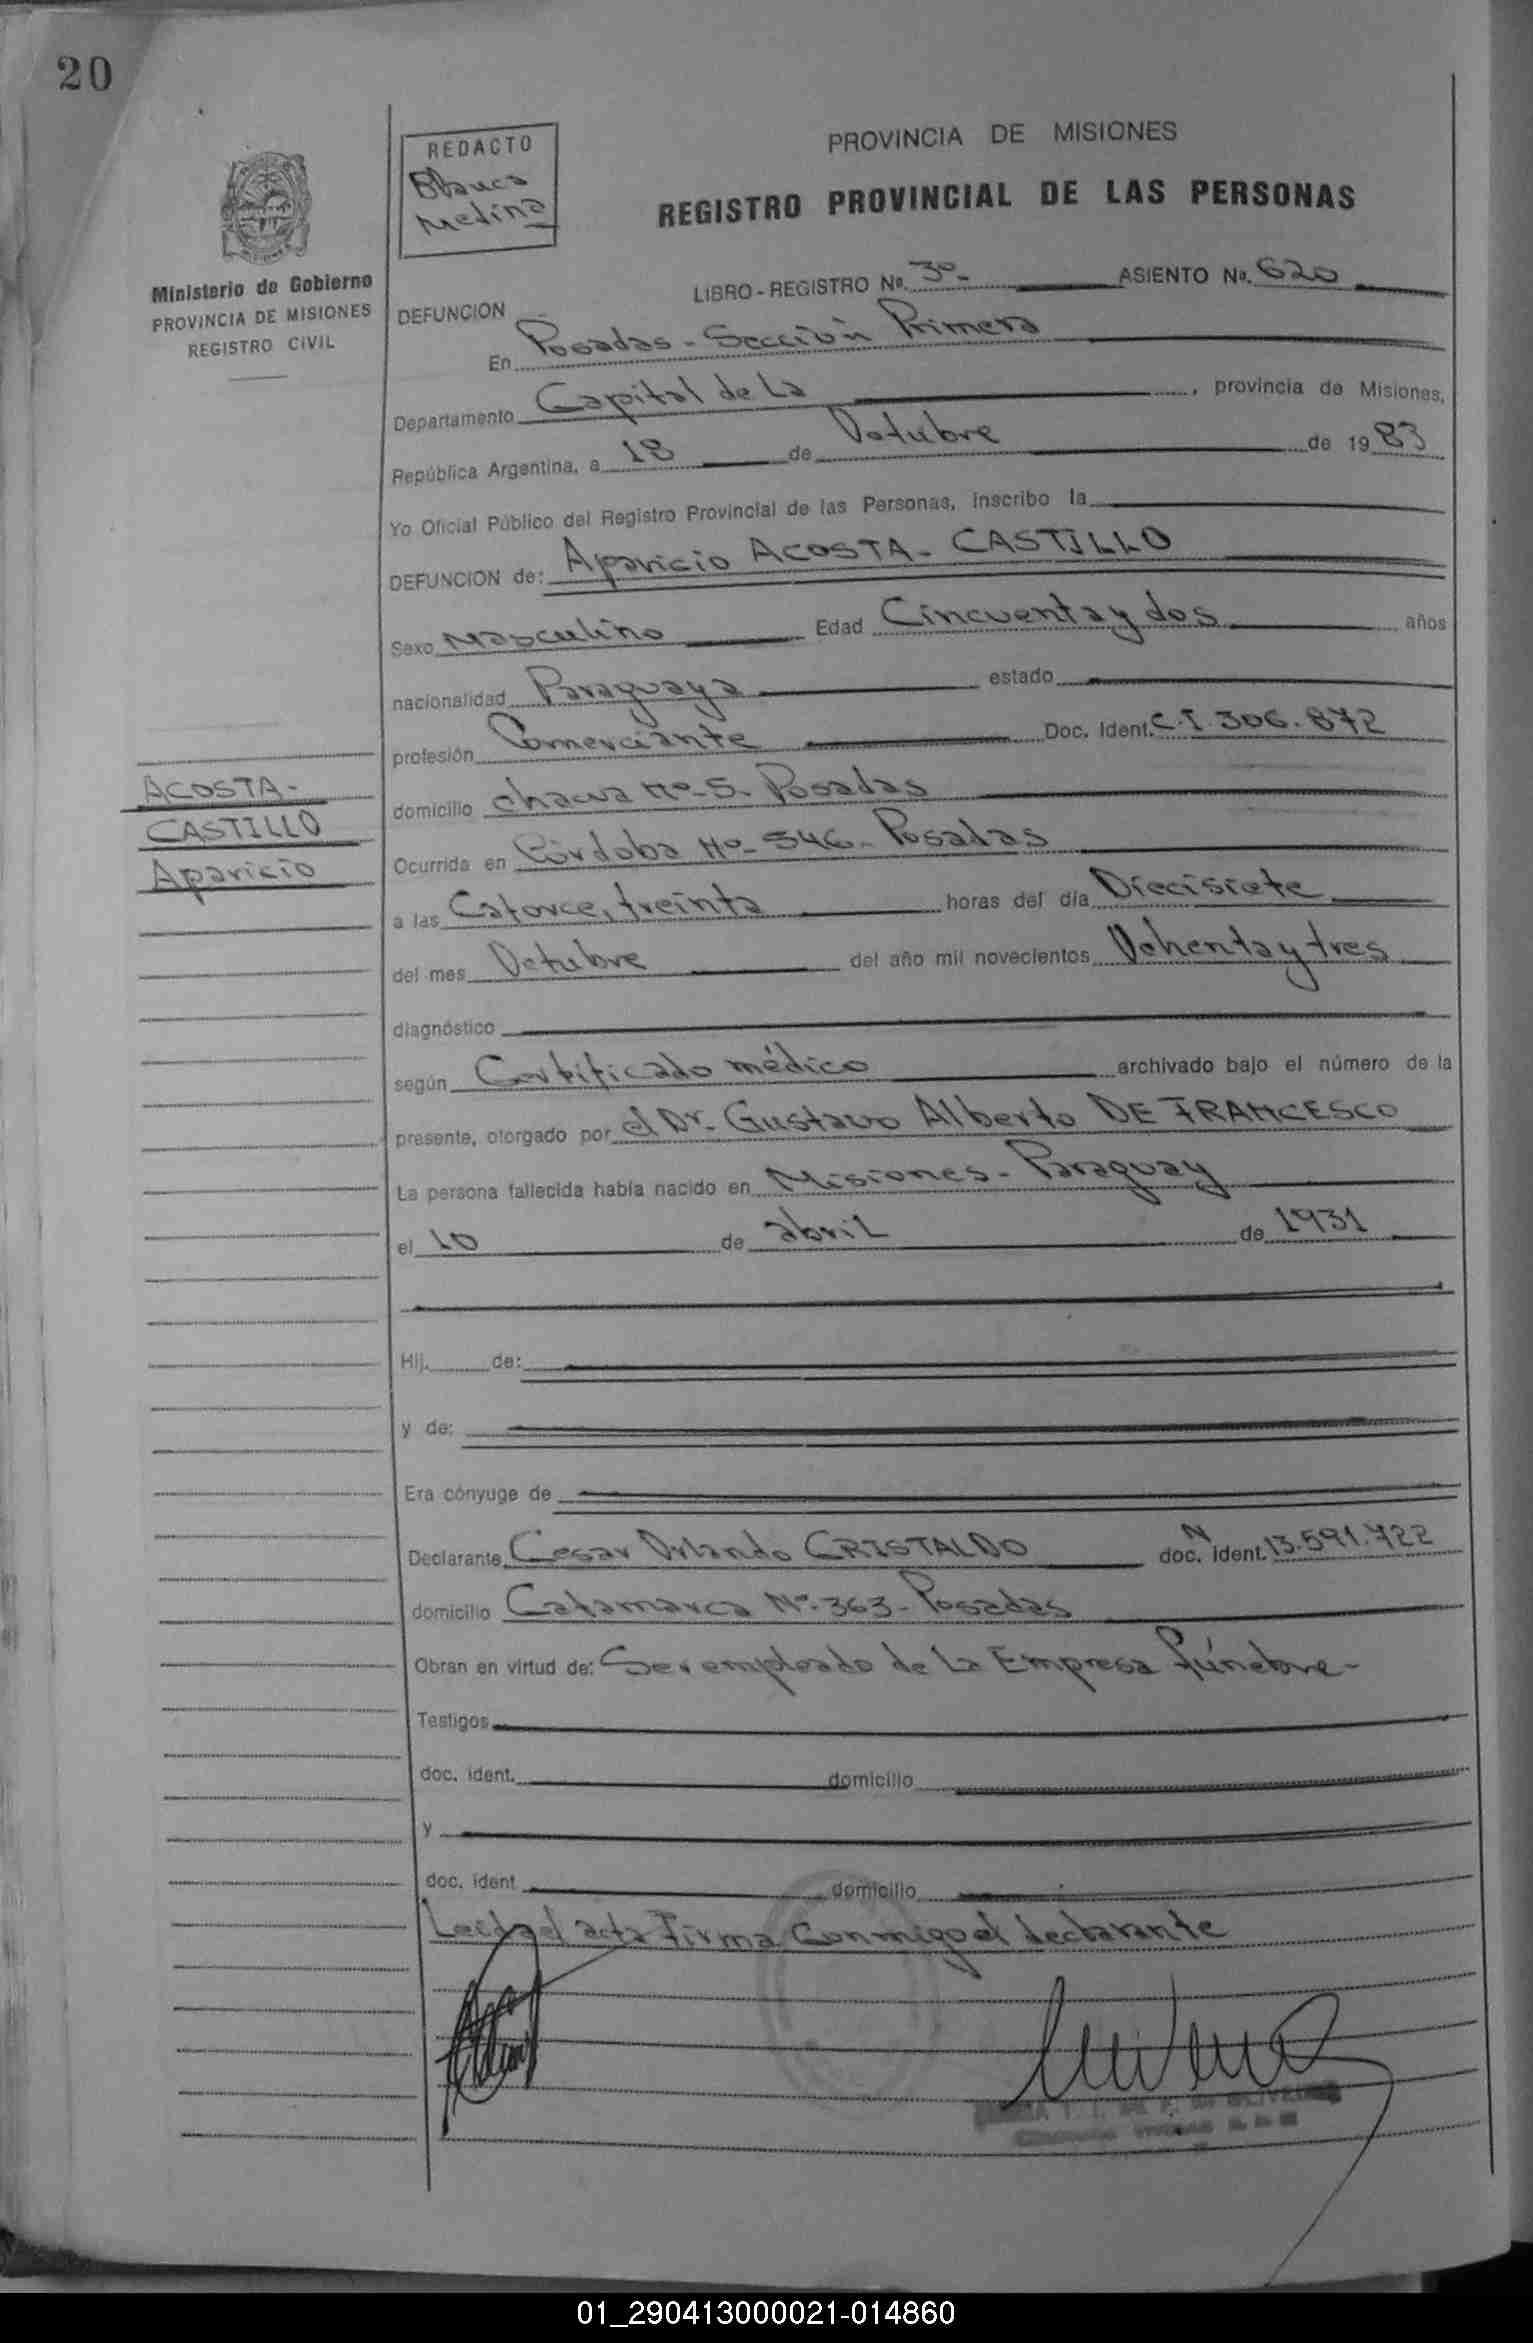 20
REDACTO
Blanca
Medina
PROVINCIA DE MISIONES
REGISTRO PROVINCIAL DE LAS PERSONAS
Ministerio de Gobierno
PROVINCIA DE MISIONES
REGISTRO CIVIL
LIBRO - REGISTRO Nº. 3º- ASIENTO Nº. 620
DEFUNCION
En Posadas - Sección Primera
Departamento Capital de La , provincia de Misiones,
República Argentina, a 18 de Octubre de 1983
Yo Oficial Público del Registro Provincial de las Personas, inscribo la
DEFUNCION de: Aparicio ACOSTA - CASTILLO
Sexo Masculino Edad Cincuenta y dos años
nacionalidad Paraguaya estado
profesión Comerciante Doc. Ident. C.I. 306.872
ACOSTA -
CASTILLO
Aparicio
domicilio chacra Nº- 5- Posadas
Ocurrida en Córdoba Nº- 546- Posadas
a las Catorce, treinta horas del día Diecisiete
del mes Octubre del año mil novecientos Ochenta y tres
diagnóstico
según Certificado médico archivado bajo el número de la
presente, otorgado por el Dr. Gustavo Alberto DE FRANCESCO
La persona fallecida había nacido en Misiones - Paraguay
el 10 de abril de 1931
Hij. de:
y de:
Era cónyuge de
Declarante Cesar Orlando CRISTALDO doc. ident. N 13.591.722
domicilio Catamarca Nº- 363- Posadas
Obran en virtud de: Ser empleado de la Empresa fúnebre -
Testigos
doc. ident. domicilio
y
doc. ident domicilio
Leída el acta Firma Conmigo el declarante
01_290413000021-014860